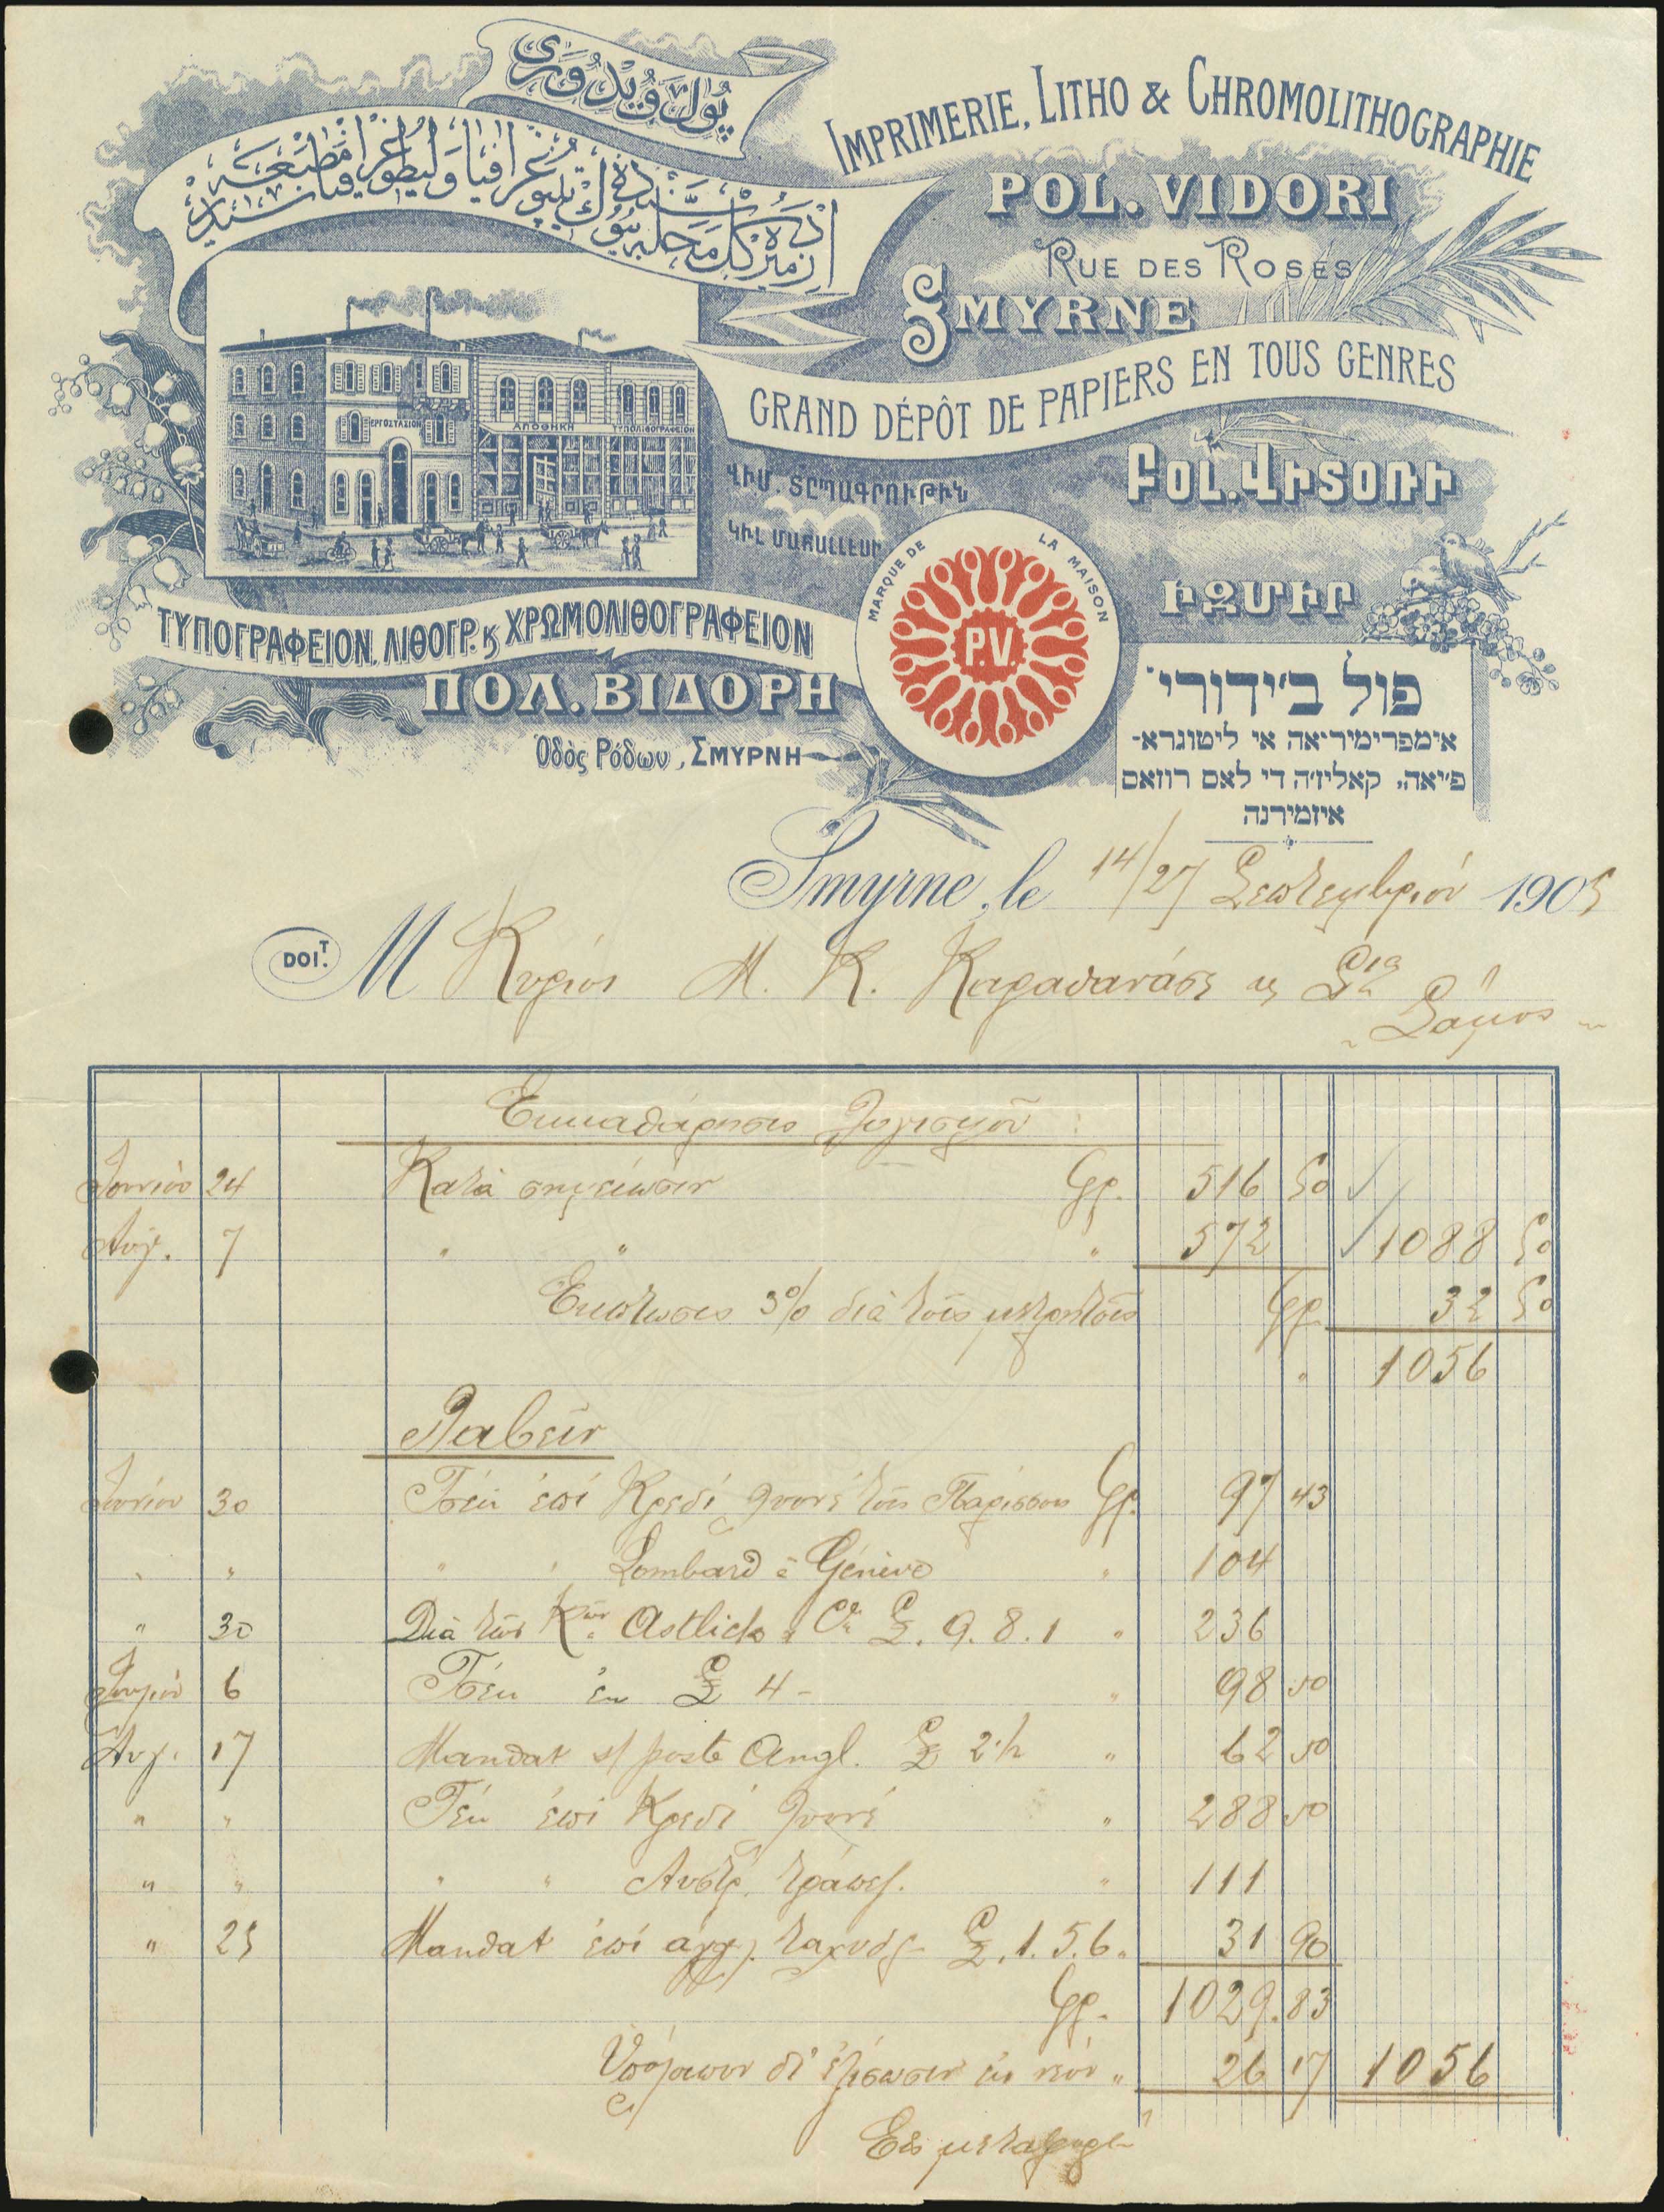 پول ویدوری
IMPRIMERIE, LITHO & CHROMOLITHOGRAPHIE
POL. VIDORI
RUE DES ROSES
SMYRNE
GRAND DÉPÔT DE PAPIERS EN TOUS GENRES
ΕΡΓΟΣΤΑΣΙΟΝ
ΑΠΟΘΗΚΗ
ΤΥΠΟΛΙΘΟΓΡΑΦΕΙΟΝ
ՎԻՄ. ՏԸՊԱԳՐՈՒԹԻՒՆ
ԿԻԼ ՄԱՀԱԼԼԵՍԻ
ԲՕԼ. ՎԻՏՕՌԻ
ԻԶՄԻՐ
MARQUE DE LA MAISON
P.V.
ΤΥΠΟΓΡΑΦΕΙΟΝ, ΛΙΘΟΓΡ. ϗ ΧΡΩΜΟΛΙΘΟΓΡΑΦΕΙΟΝ
ΠΟΛ. ΒΙΔΟΡΗ
Ὁδὸς Ῥόδων, ΣΜΥΡΝΗ
פול ב'ידורי
אימפרימיריאה אי ליטוגרא-
פ'יאה, קאליז'ה די לאס רוזאס
איזמירנה
Smyrne, le 14/27 Σεπτεμβρίου 1905
DOIT. M Κύριος Μ. Κ. Καραθανάσης ϗ Σία
Σάμος
Εκκαθάρησις Λογισμοῦ:
Ἰουνίου 24 Κατὰ σημείωσιν Γρ. 516 50
Αυγ. 7 " " " 572 1088 50
Εκπτωσις 3% διὰ τοῖς μετρητοῖς Γρ. 32 50
" 1056
Λαβεῖν
Ἰουνίου 30 Τσέκ ἐπί Κρεδί Λυονέ τοῖς Παρισίοις Γρ. 97 43
" " " " Lombard à Génève " 104
" 30 Διὰ τῶν Κων Astlick & Co £. 9. 8. 1 " 236
Ἰουλίου 6 Τσέκ ἐκ £ 4 - " 98 50
Αυγ. 17 Mandat s/ poste Angl. £ " 62 50
" " Τσέκ ἐπί Κρεδί Λυονέ " 288 50
" " " " Αυστρ. τράπεζ. " 111
" 25 Mandat ἐπί ἀγγλ. ταχυδρ. £. 1. 5. 6. " 31 90
Γρ. 1029.83
Υπόλοιπον δι' ἐξίσωσιν εἰς νέον " 26 17 1056